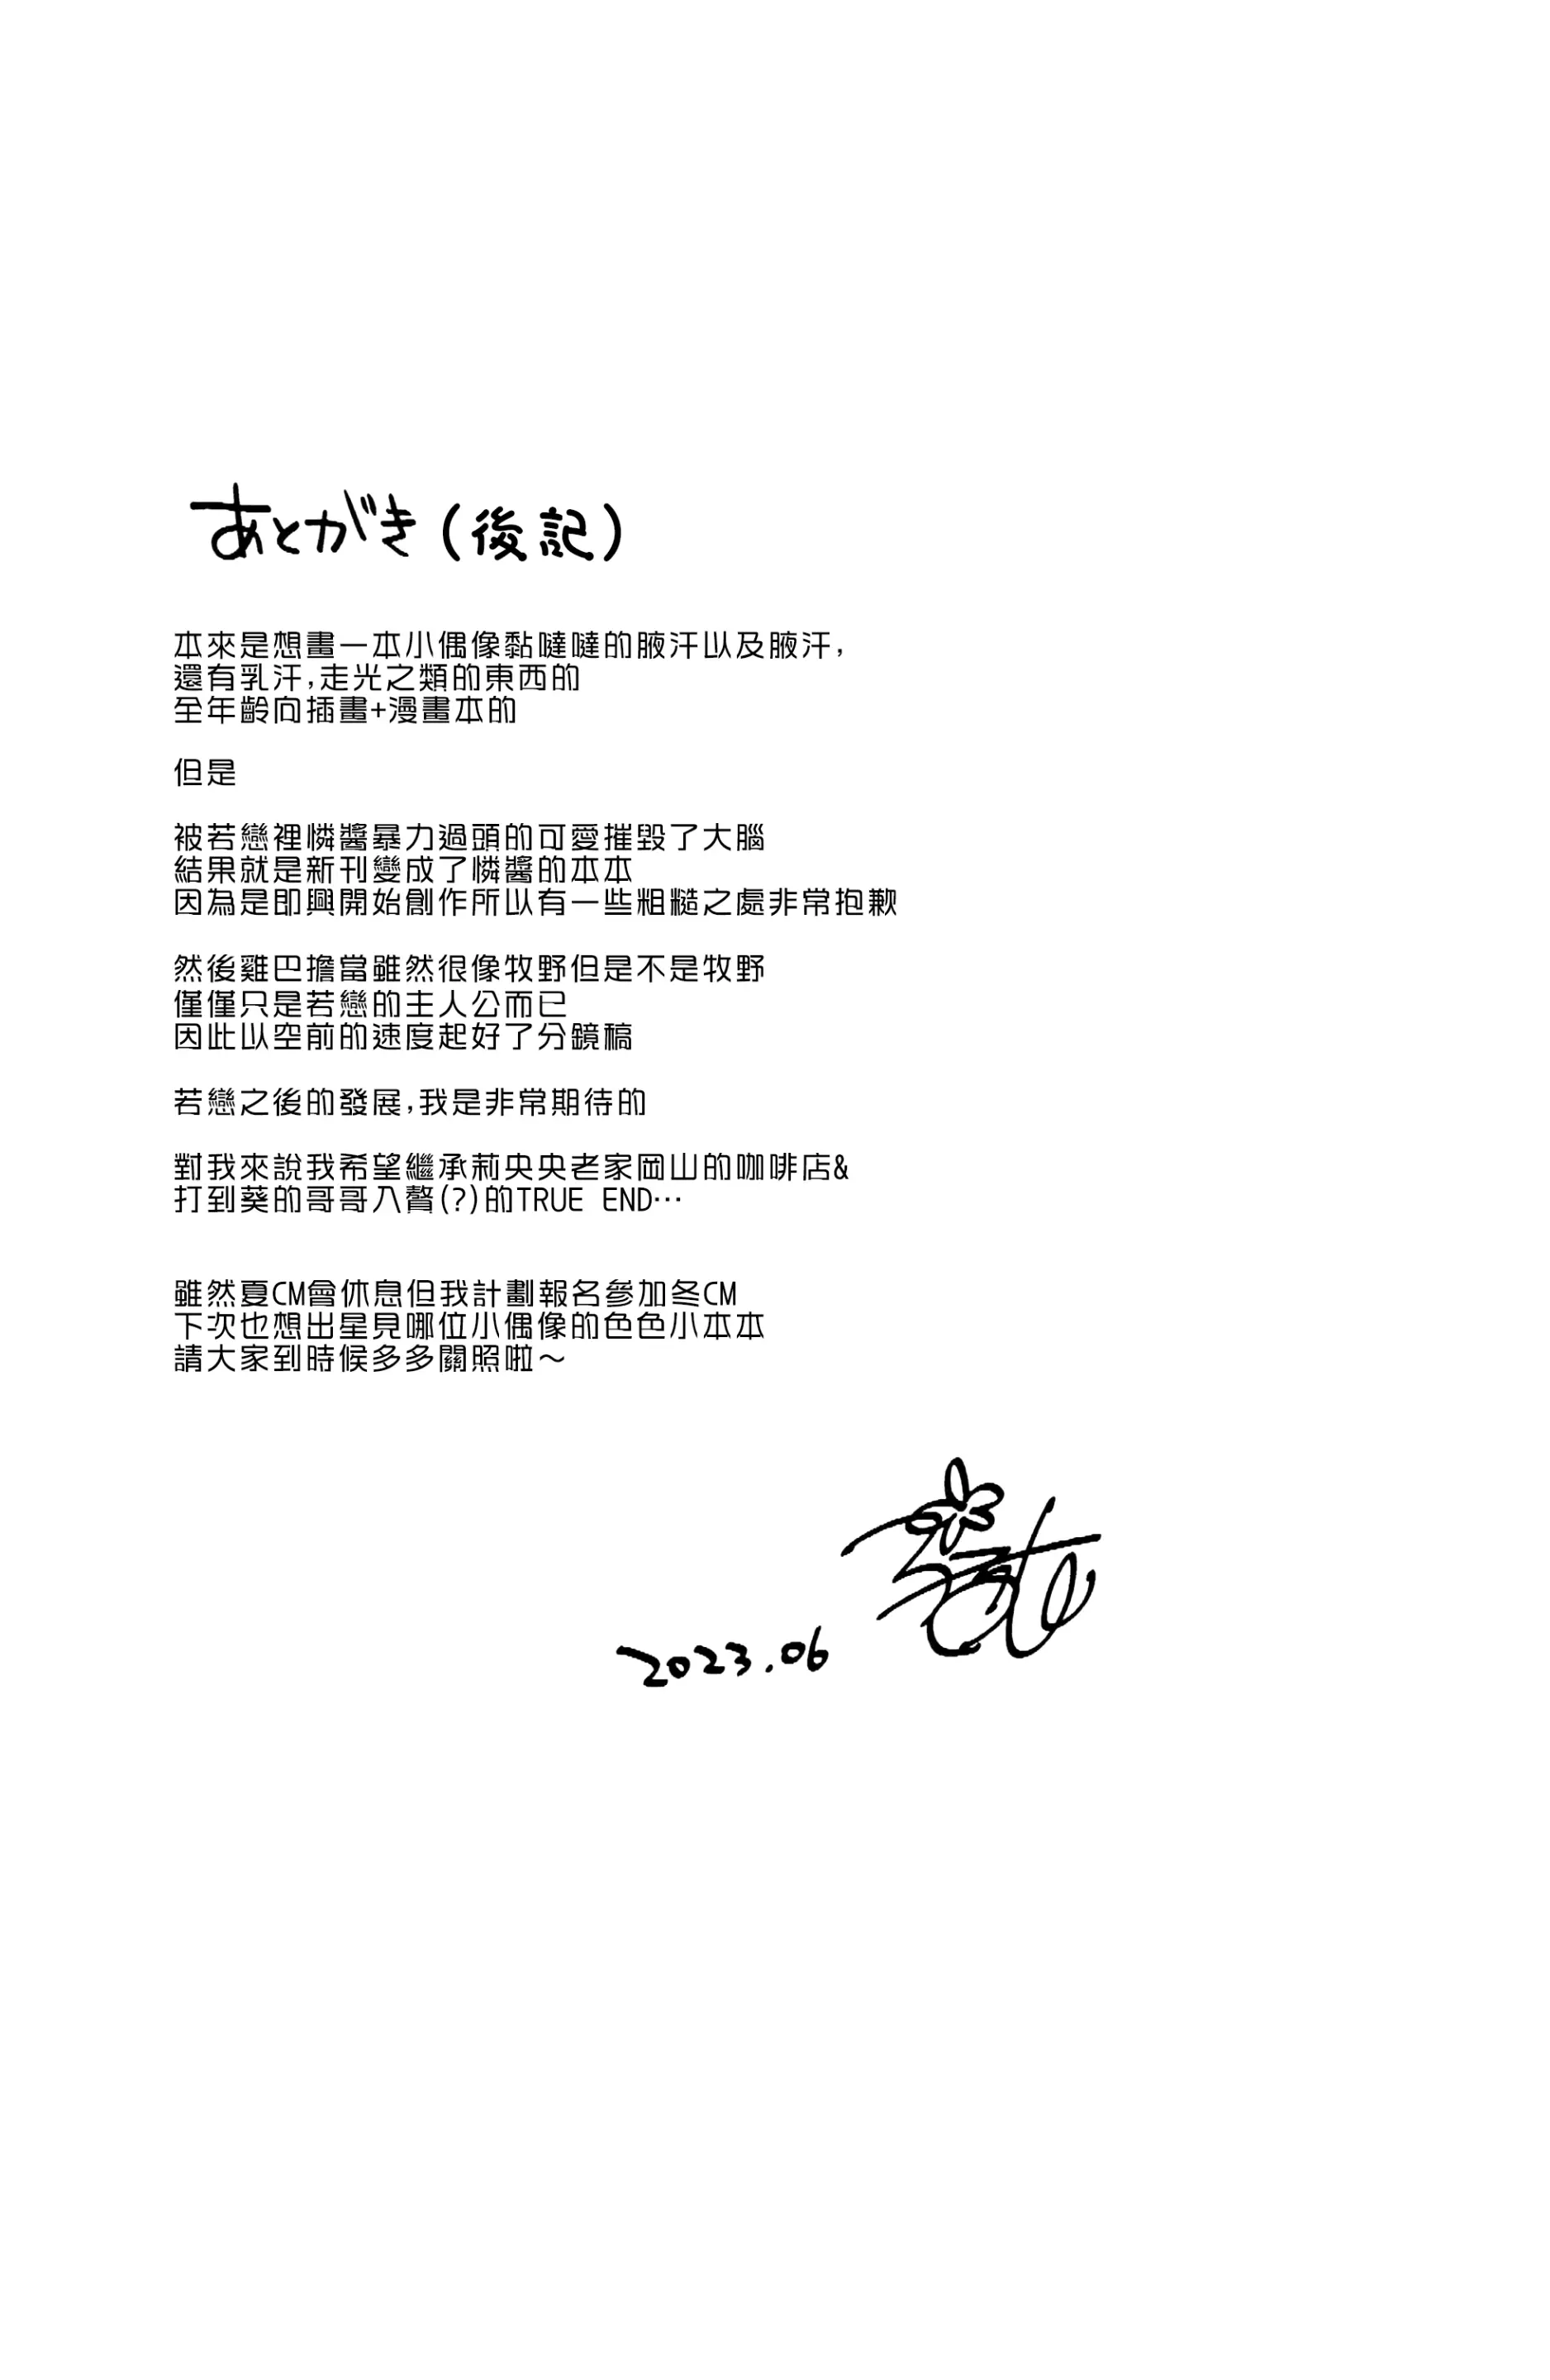 あとがき(後記)
本來是想畫一本小偶像黏噠噠的腋汗以及腋汗,
還有乳汗,走光之類的東西的
全年齡向插畫+漫畫本的
但是
被若戀裡憐醬暴力過頭的可愛摧毀了大腦
結果就是新刊變成了憐醬的本本
因為是即興開始創作所以有一些粗糙之處非常抱歉
然後雞巴擔當雖然很像牧野但是不是牧野
僅僅只是若戀的主人公而已
因此以空前的速度起好了分鏡稿
若戀之後的發展,我是非常期待的
對我來說我希望繼承莉央央老家岡山的咖啡店&
打到葵的哥哥入贅(?)的TRUE END…
雖然夏CM會休息但我計劃報名參加冬CM
下次也想出星見哪位小偶像的色色小本本
請大家到時候多多關照啦～
2023.06